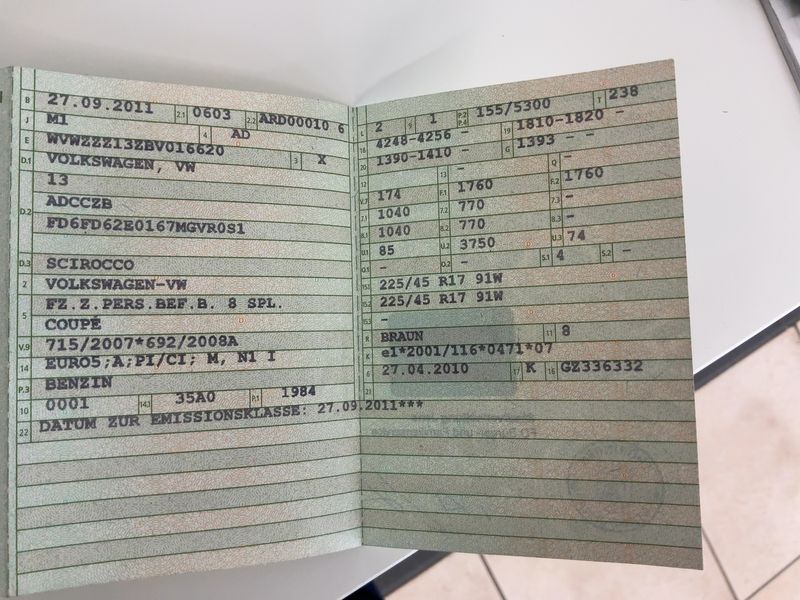 B 27.09.2011 2.1 0603 2.2 ARD00010 6
J M1 4 AD
E WVWZZZ13ZBV016620 3 X
D.1 VOLKSWAGEN, VW
13
D.2 ADCCZB
FD6FD62E0167MGVR0S1
D.3 SCIROCCO
2 VOLKSWAGEN-VW
5 FZ.Z.PERS.BEF.B. 8 SPL.
COUPÉ
V.9 715/2007*692/2008A
14 EURO5;A;PI/CI; M, N1 I
P.3 BENZIN
10 0001 14.1 35A0 P.1 1984
22 DATUM ZUR EMISSIONSKLASSE: 27.09.2011***
L 2 9 1 P.2 P.4 155/5300 T 238
18 4248-4256 - 19 1810-1820 -
20 1390-1410 - G 1393 - -
12 - 13 - Q -
V.7 174 F.1 1760 F.2 1760
7.1 1040 7.2 770 7.3 -
8.1 1040 8.2 770 8.3 -
U.1 85 U.2 3750 U.3 74
O.1 - O.2 - S.1 4 S.2 -
15.1 225/45 R17 91W
15.2 225/45 R17 91W
15.3 -
R BRAUN 11 8
K e1*2001/116*0471*07
6 27.04.2010 17 K 16 GZ336332
21